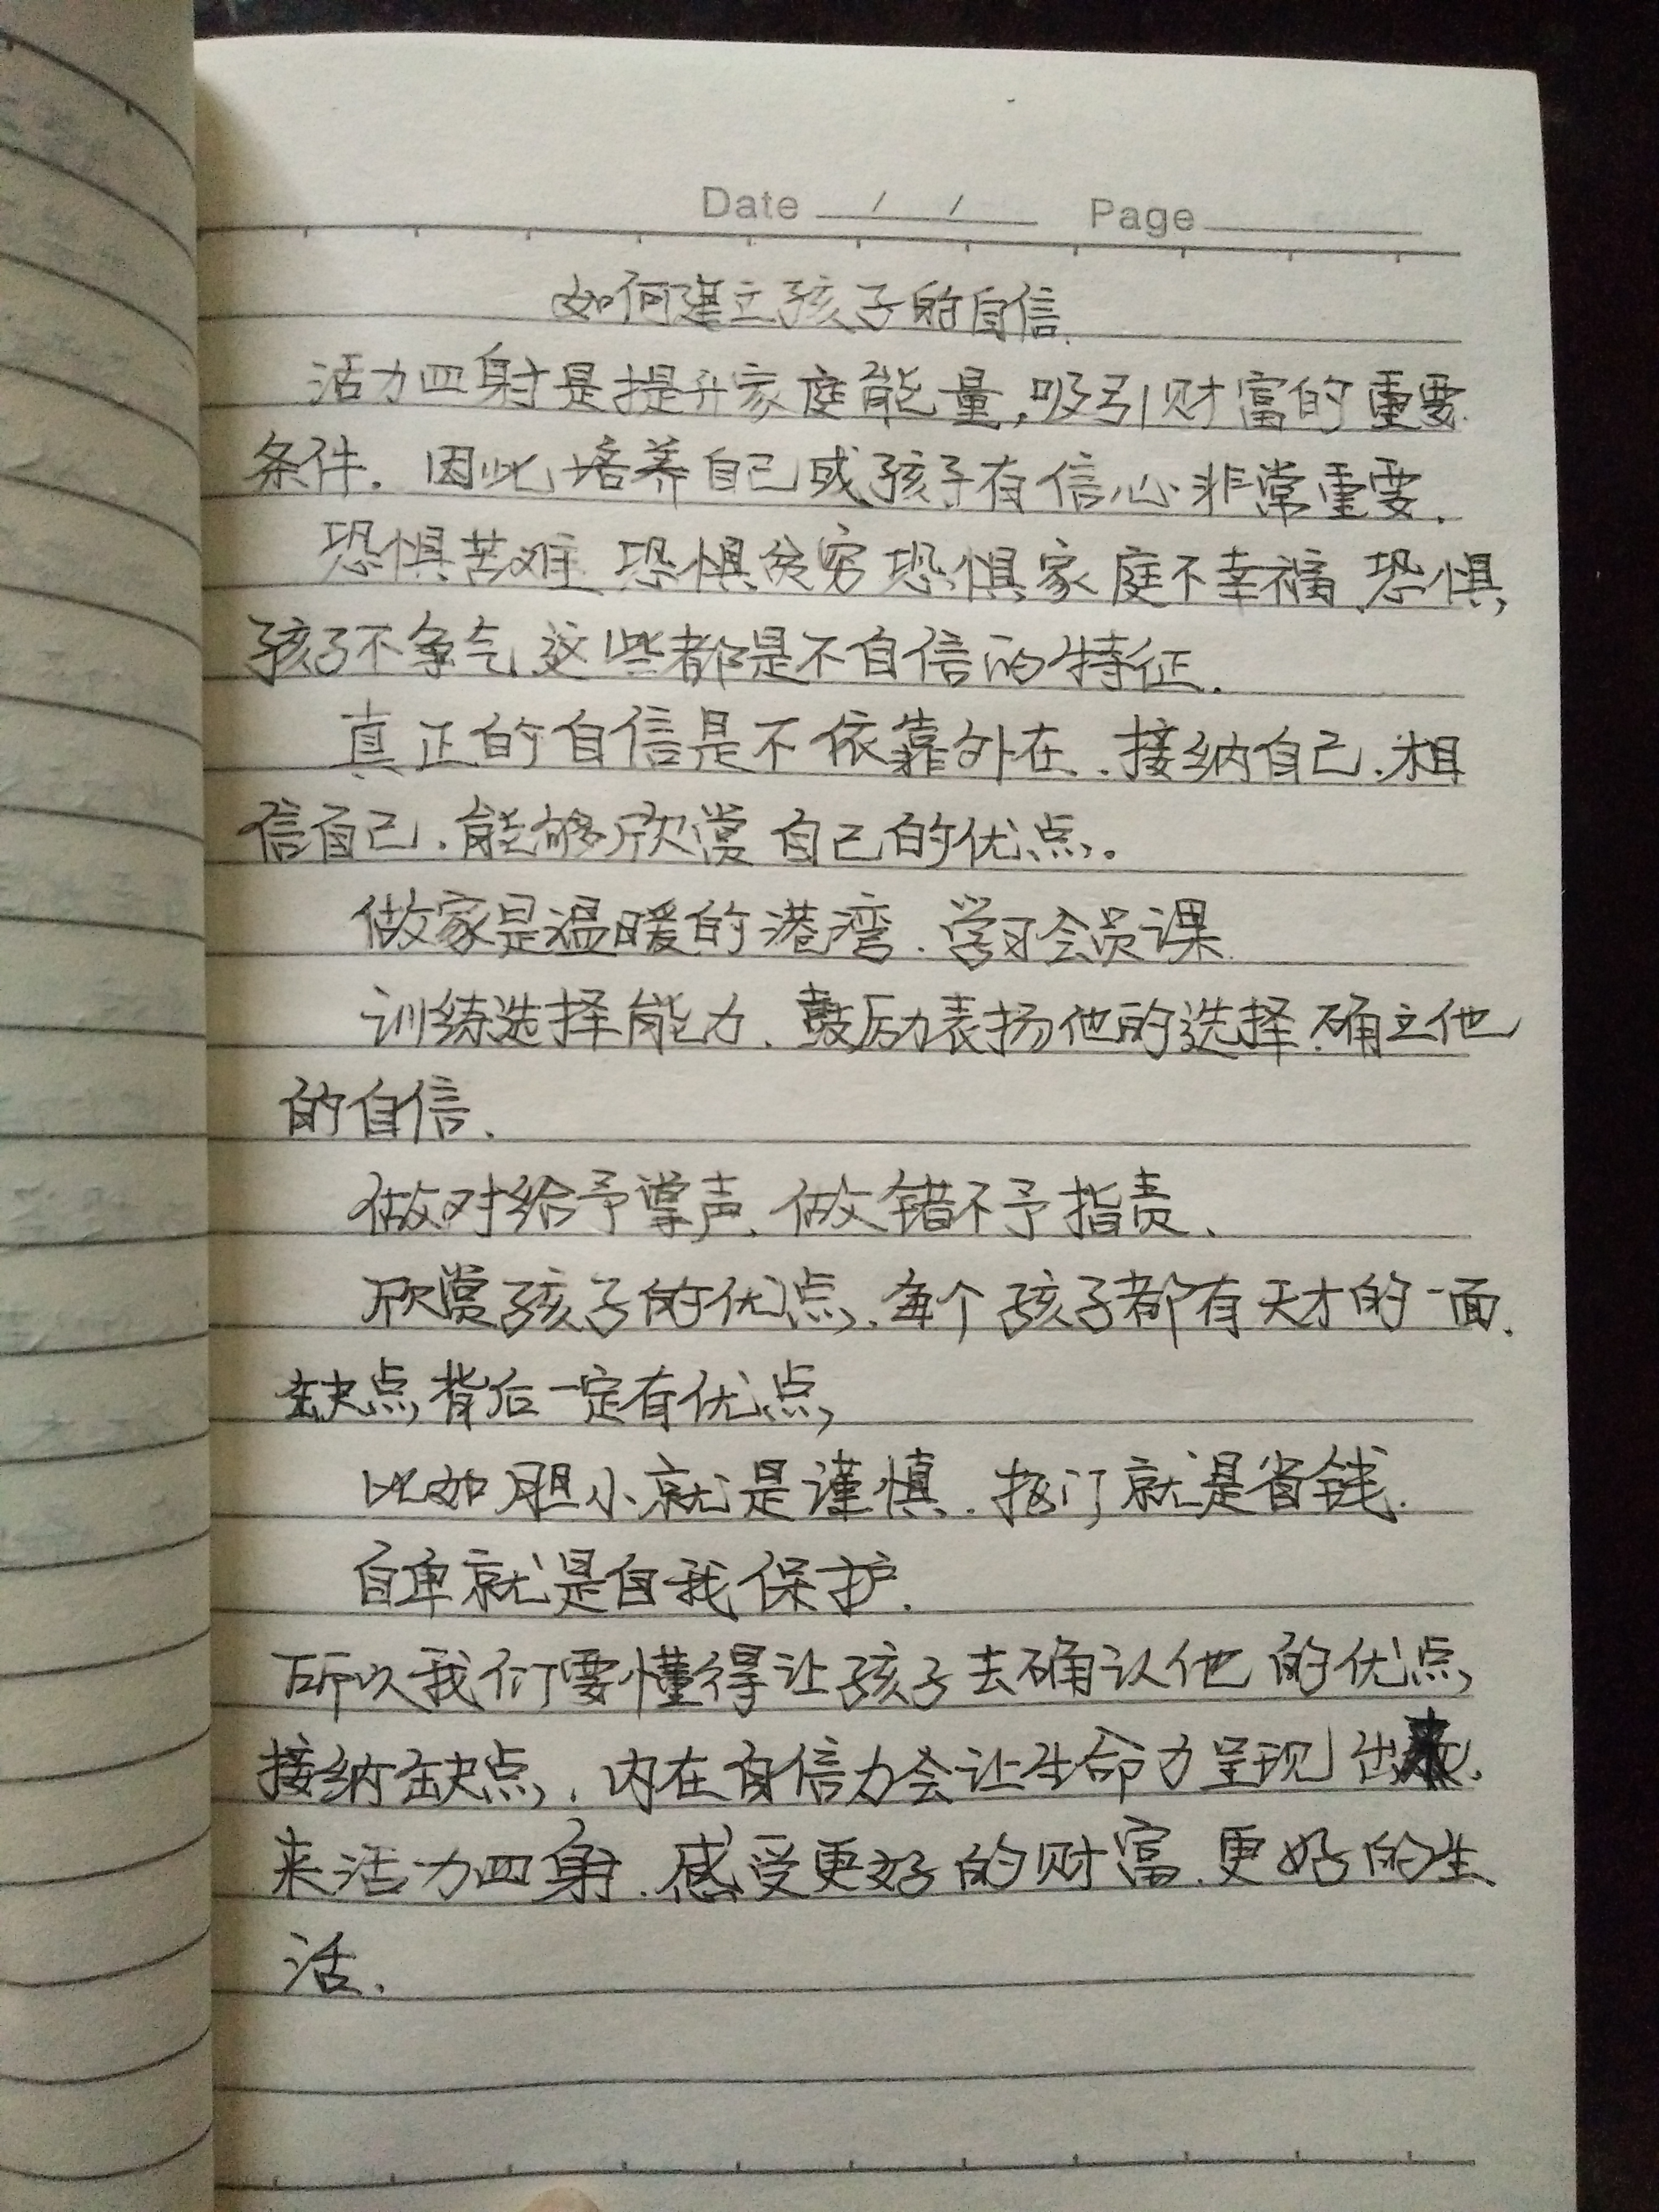 Date / / Page
如何建立孩子的自信.
活力四射是提升家庭能量,吸引财富的重要
条件. 因此培养自己或孩子有信心非常重要.
恐惧苦难 恐惧贫穷 恐惧家庭不幸福、恐惧,
孩子不争气、这些都是不自信的特征.
真正的自信是不依靠外在、接纳自己、相
信自己、能够欣赏自己的优点。
做家是温暖的港湾、学习会员课
训练选择能力、鼓励表扬他的选择、确立他
的自信、
做对给予掌声、做错不予指责、
欣赏孩子的优点、每个孩子都有天才的一面、
缺点背后一定有优点,
比如胆小就是谨慎、抠门就是省钱.
自卑就是自我保护.
所以我们要懂得让孩子去确认他的优点,
接纳缺点、内在自信力会让生命力呈现出
来活力四射、感受更好的财富、更好的生
活.